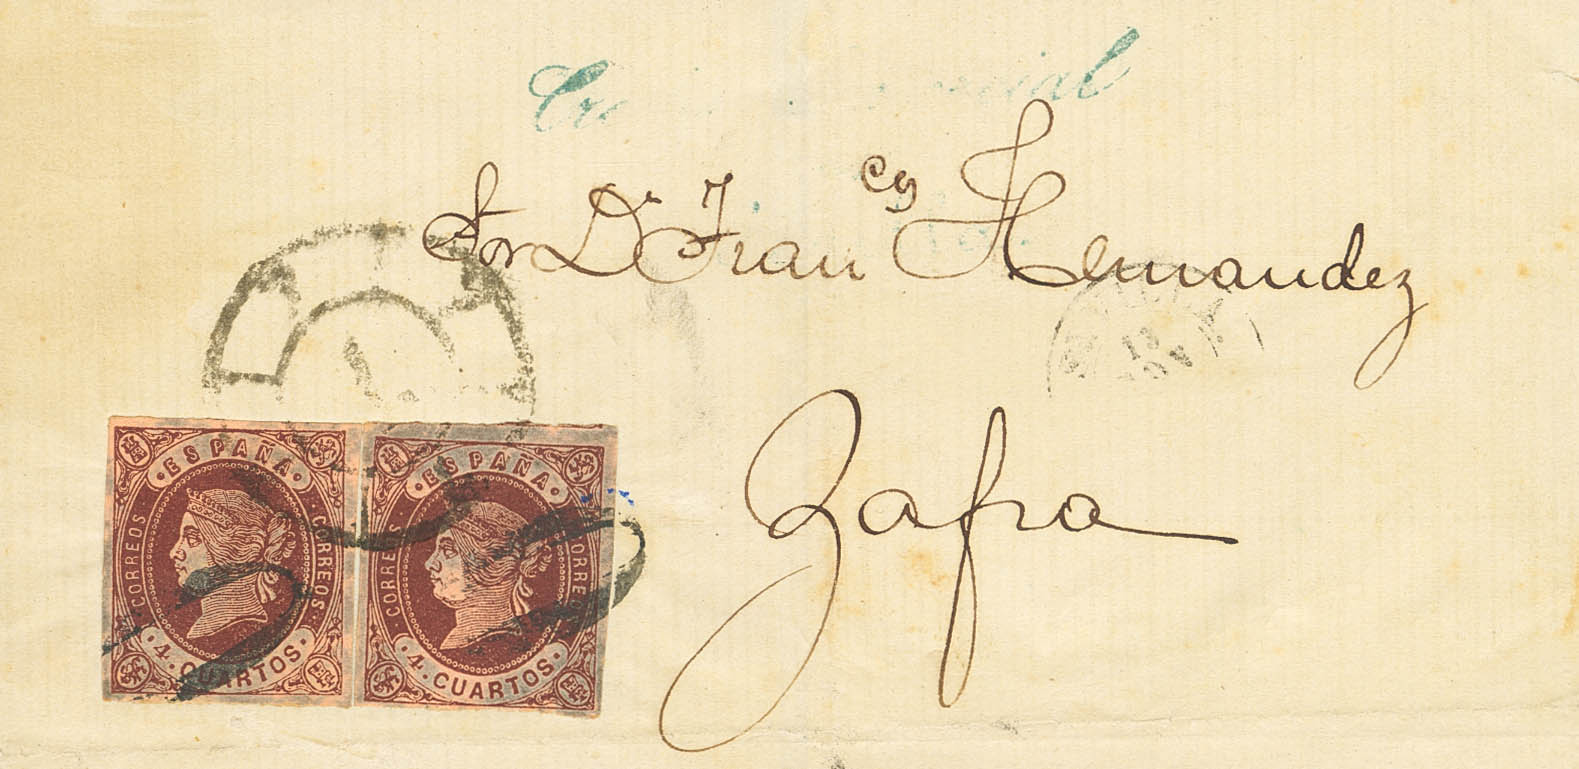 Sor Dn Franco Hernandez
Zafra
ESPAÑA
CORREOS CORREOS
4 CUARTOS
ESPAÑA
CORREOS CORREOS
4 CUARTOS